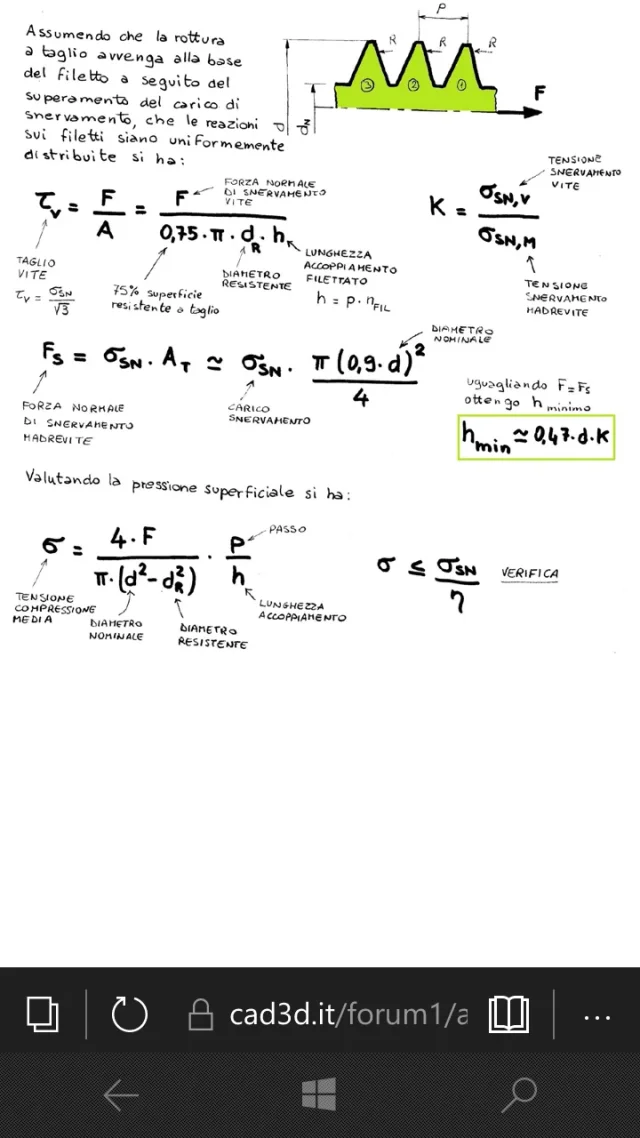 Assumendo che la rottura
a taglio avvenga alla base
del filetto a seguito del
superamento del carico di
snervamento, che le reazioni
sui filetti siano uniformemente
distribuite si ha:
P
R R R
3 2 1
F
d
dN
τv = F/A = F/(0,75·π·dR·h)
FORZA NORMALE
DI SNERVAMENTO
VITE
TAGLIO
VITE
τv = σSN/√3
75% superficie
resistente a taglio
DIAMETRO
RESISTENTE
LUNGHEZZA
ACCOPPIAMENTO
FILETTATO
h = p·nFIL
K = σSN,V/σSN,M
TENSIONE
SNERVAMENTO
VITE
TENSIONE
SNERVAMENTO
MADREVITE
FS = σSN·AT ≃ σSN·π(0,9·d)²/4
DIAMETRO
NOMINALE
FORZA NORMALE
DI SNERVAMENTO
MADREVITE
CARICO
SNERVAMENTO
uguagliando F=FS
ottengo h minimo
hmin ≃ 0,47·d·K
Valutando la pressione superficiale si ha:
σ = 4·F/(π·(d²-dR²))·P/h
PASSO
TENSIONE
COMPRESSIONE
MEDIA
DIAMETRO
NOMINALE
DIAMETRO
RESISTENTE
LUNGHEZZA
ACCOPPIAMENTO
σ ≤ σSN/η VERIFICA
cad3d.it/forum1/a